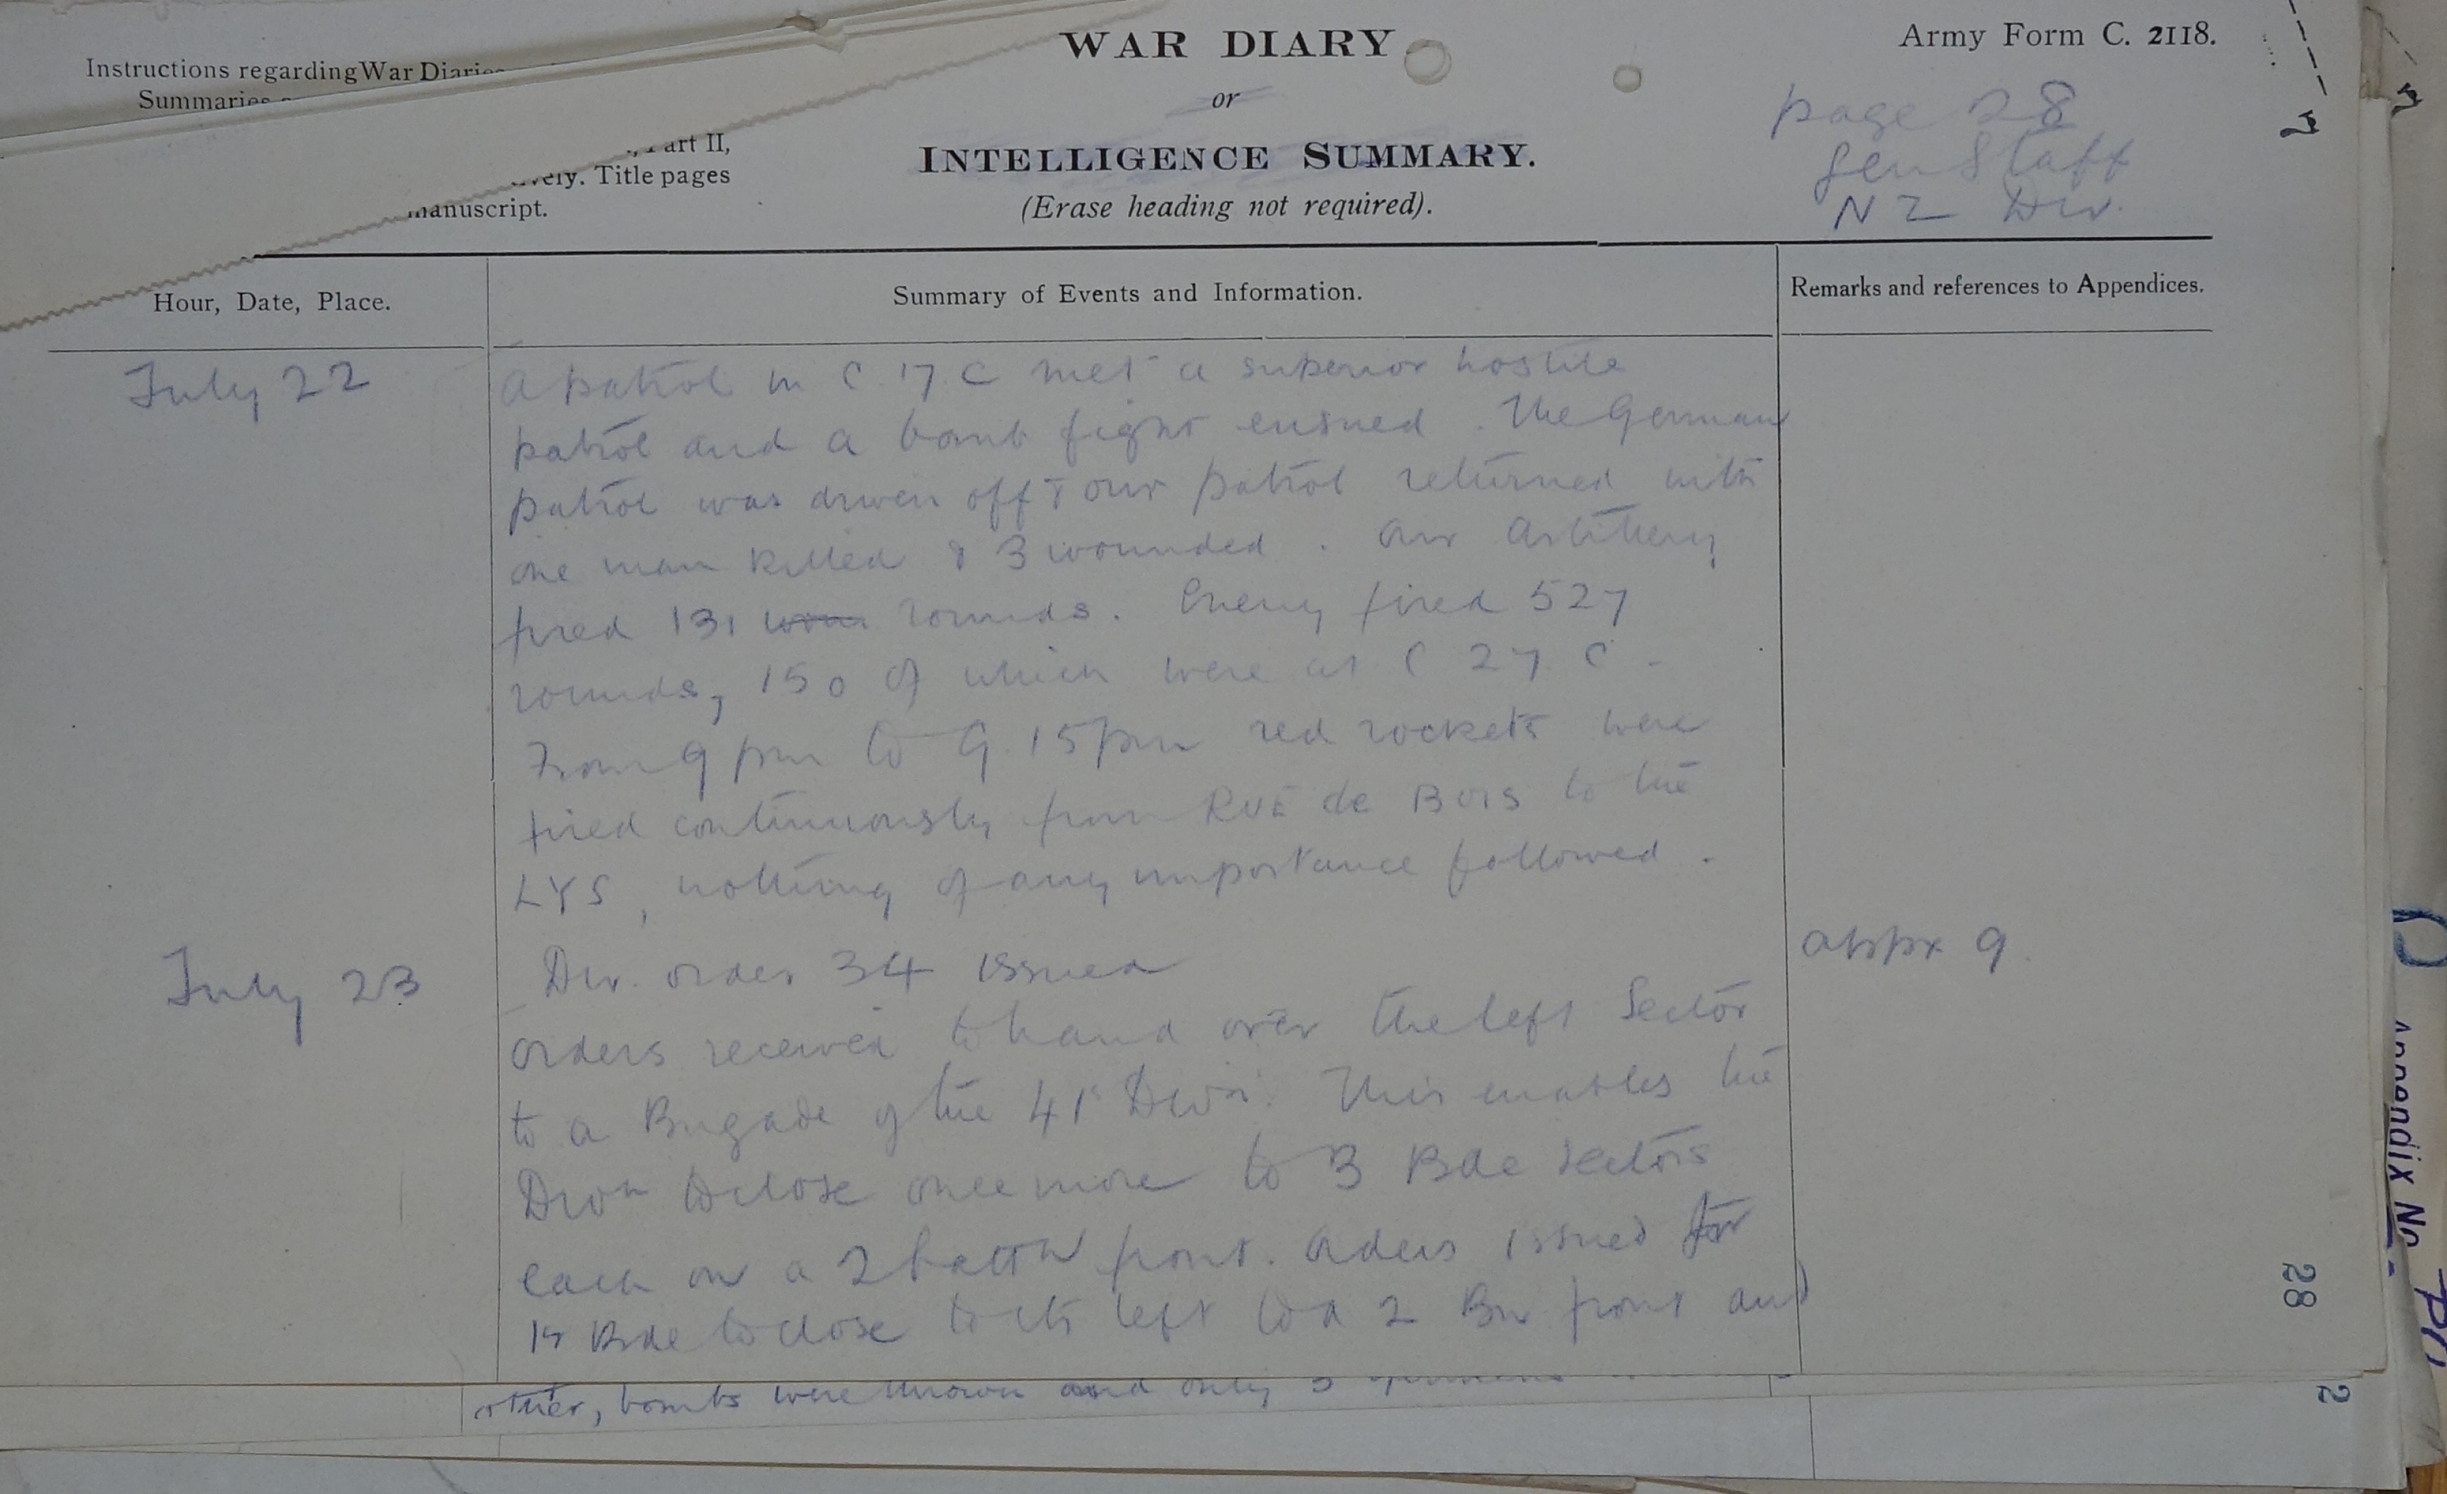 Instructions regarding War Diaries
Summaries
Part II,
Title pages
manuscript.
WAR DIARY
or
INTELLIGENCE SUMMARY.
(Erase heading not required).
Army Form C. 2118.
page 28
Gen Staff
NZ Div.
Hour, Date, Place.
Summary of Events and Information.
Remarks and references to Appendices.
July 22
A patrol in C.17.C met a superior hostile
patrol and a bomb fight ensued. The German
patrol was driven off & our patrol returned with
one man killed & 3 wounded. Our Artillery
fired 131 rounds. Enemy fired 527
rounds, 150 of which were at C 27. C.
From 9 pm to 9.15 pm red rockets were
fired continuously from RUE de BOIS to the
LYS, nothing of any importance followed.
July 23
Div. order 34 issued
appx 9.
Orders received to hand over the left Sector
to a Brigade of the 41st Divn. This enables the
Divn to close once more to 3 Bde Sectors
each on a 2 battn front. Orders issued for
1st Bde to close to its left to a 2 Bn front and
other, bombs were thrown and only 3
28
2
Appendix No